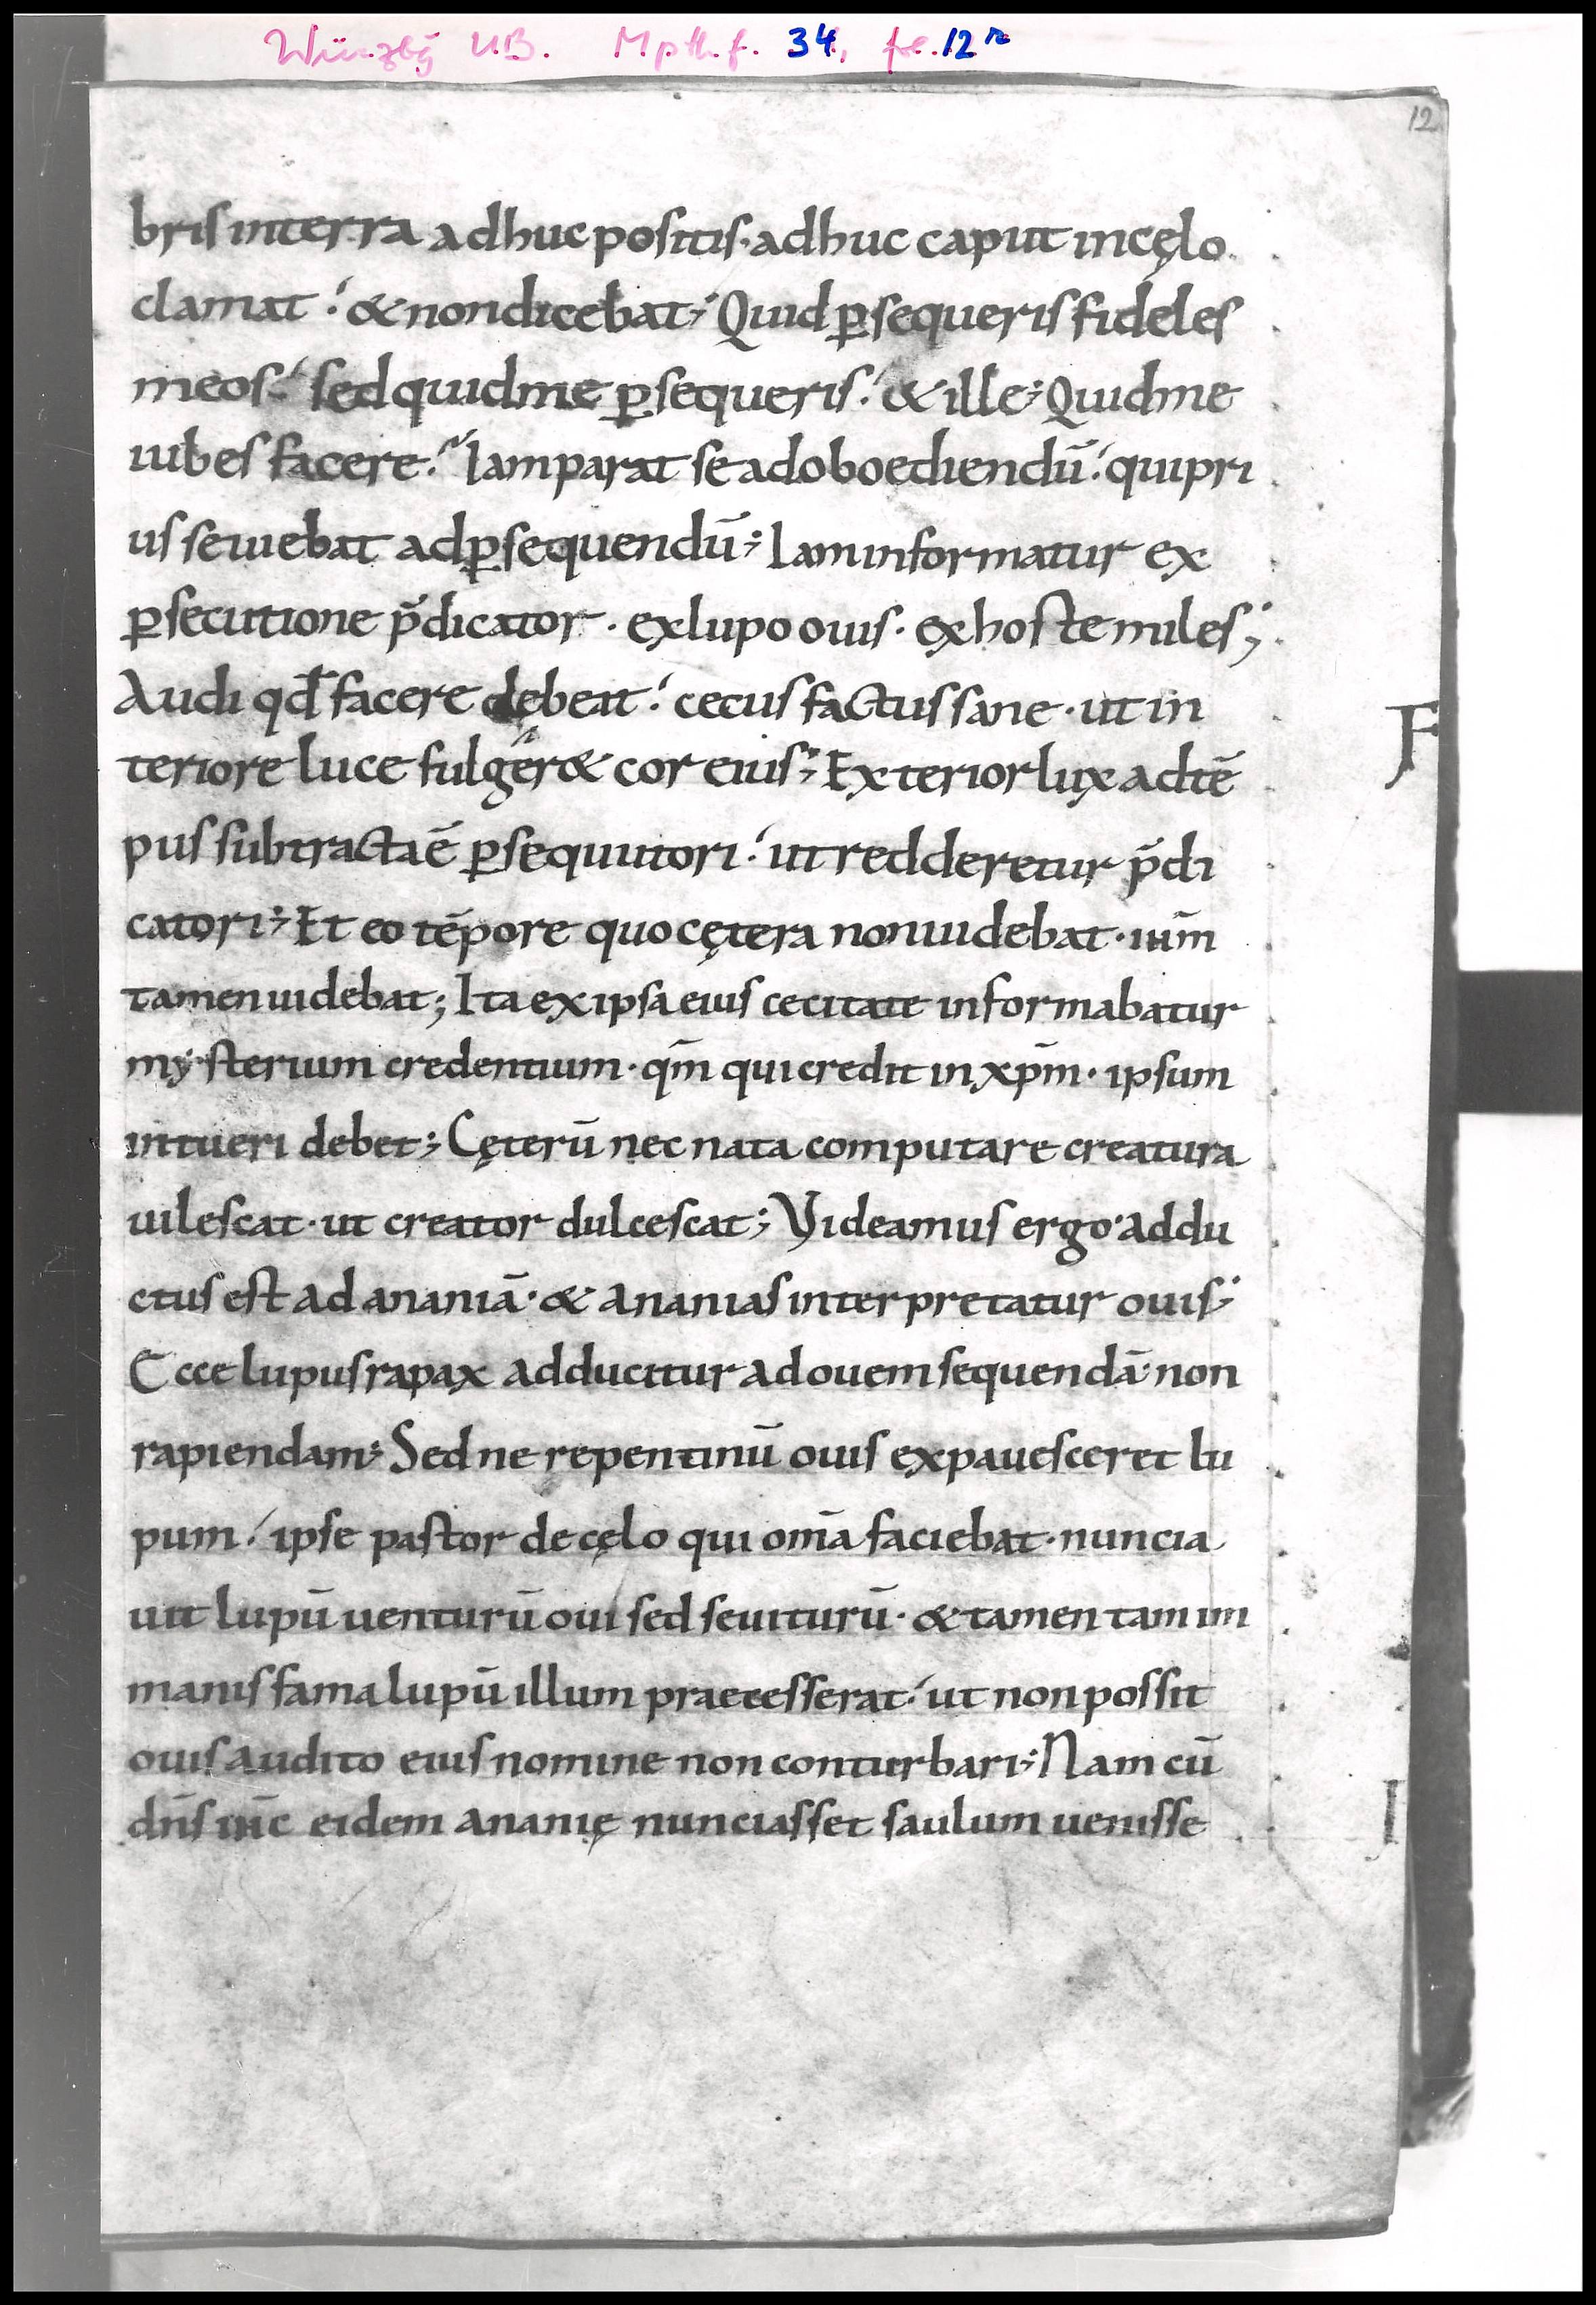 Würzbg UB. Mp.th.f. 34, fol. 12r
12
bris in terra adhuc positis · adhuc caput in cęlo
clamat ; & non dicebat ; Quid p̱sequeris fideles
meos ; sed quid me p̱sequeris ; & ille ; Quid me
iubes facere ; Iam parat se ad oboediendū ; qui pri
us seuiebat ad p̱sequendū ; Iam informatur ex
p̱secutione p̄dicator · ex lupo ouis · ex hoste miles ;
Audi qđ facere debeat ; cecus factus sane · ut in
teriore luce fulger& cor eius ; Exterior lux ad tē
pus subtracta ē p̱sequutori ; ut redderetur p̄di
catori ; Et eo tēpore quo cętera non uidebat · iħm
tamen uidebat ; Ita ex ipsa eius cecitate informabatur
mysterium credentium · qm̄ qui credit in xp̄m · ipsum
intueri debet ; Cęterū nec nata computare creatura
uilescat · ut creator dulcescat ; Videamus ergo · addu
ctus est ad ananiā · & ananias interpretatur ouis ;
Ecce lupus rapax adducitur ad ouem sequendā · non
rapiendam ; Sed ne repentinū ouis expauesceret lu
pum ; ipse pastor de cęlo qui om̄a faciebat · nuncia
uit lupū uenturū oui sed seuiturū · & tamen tam im
manis fama lupū illum praecesserat ; ut non possit
ouis audito eius nomine non conturbari ; Nam cū
dn̄s iħc eidem ananię nunciasset saulum uenisse
F
I